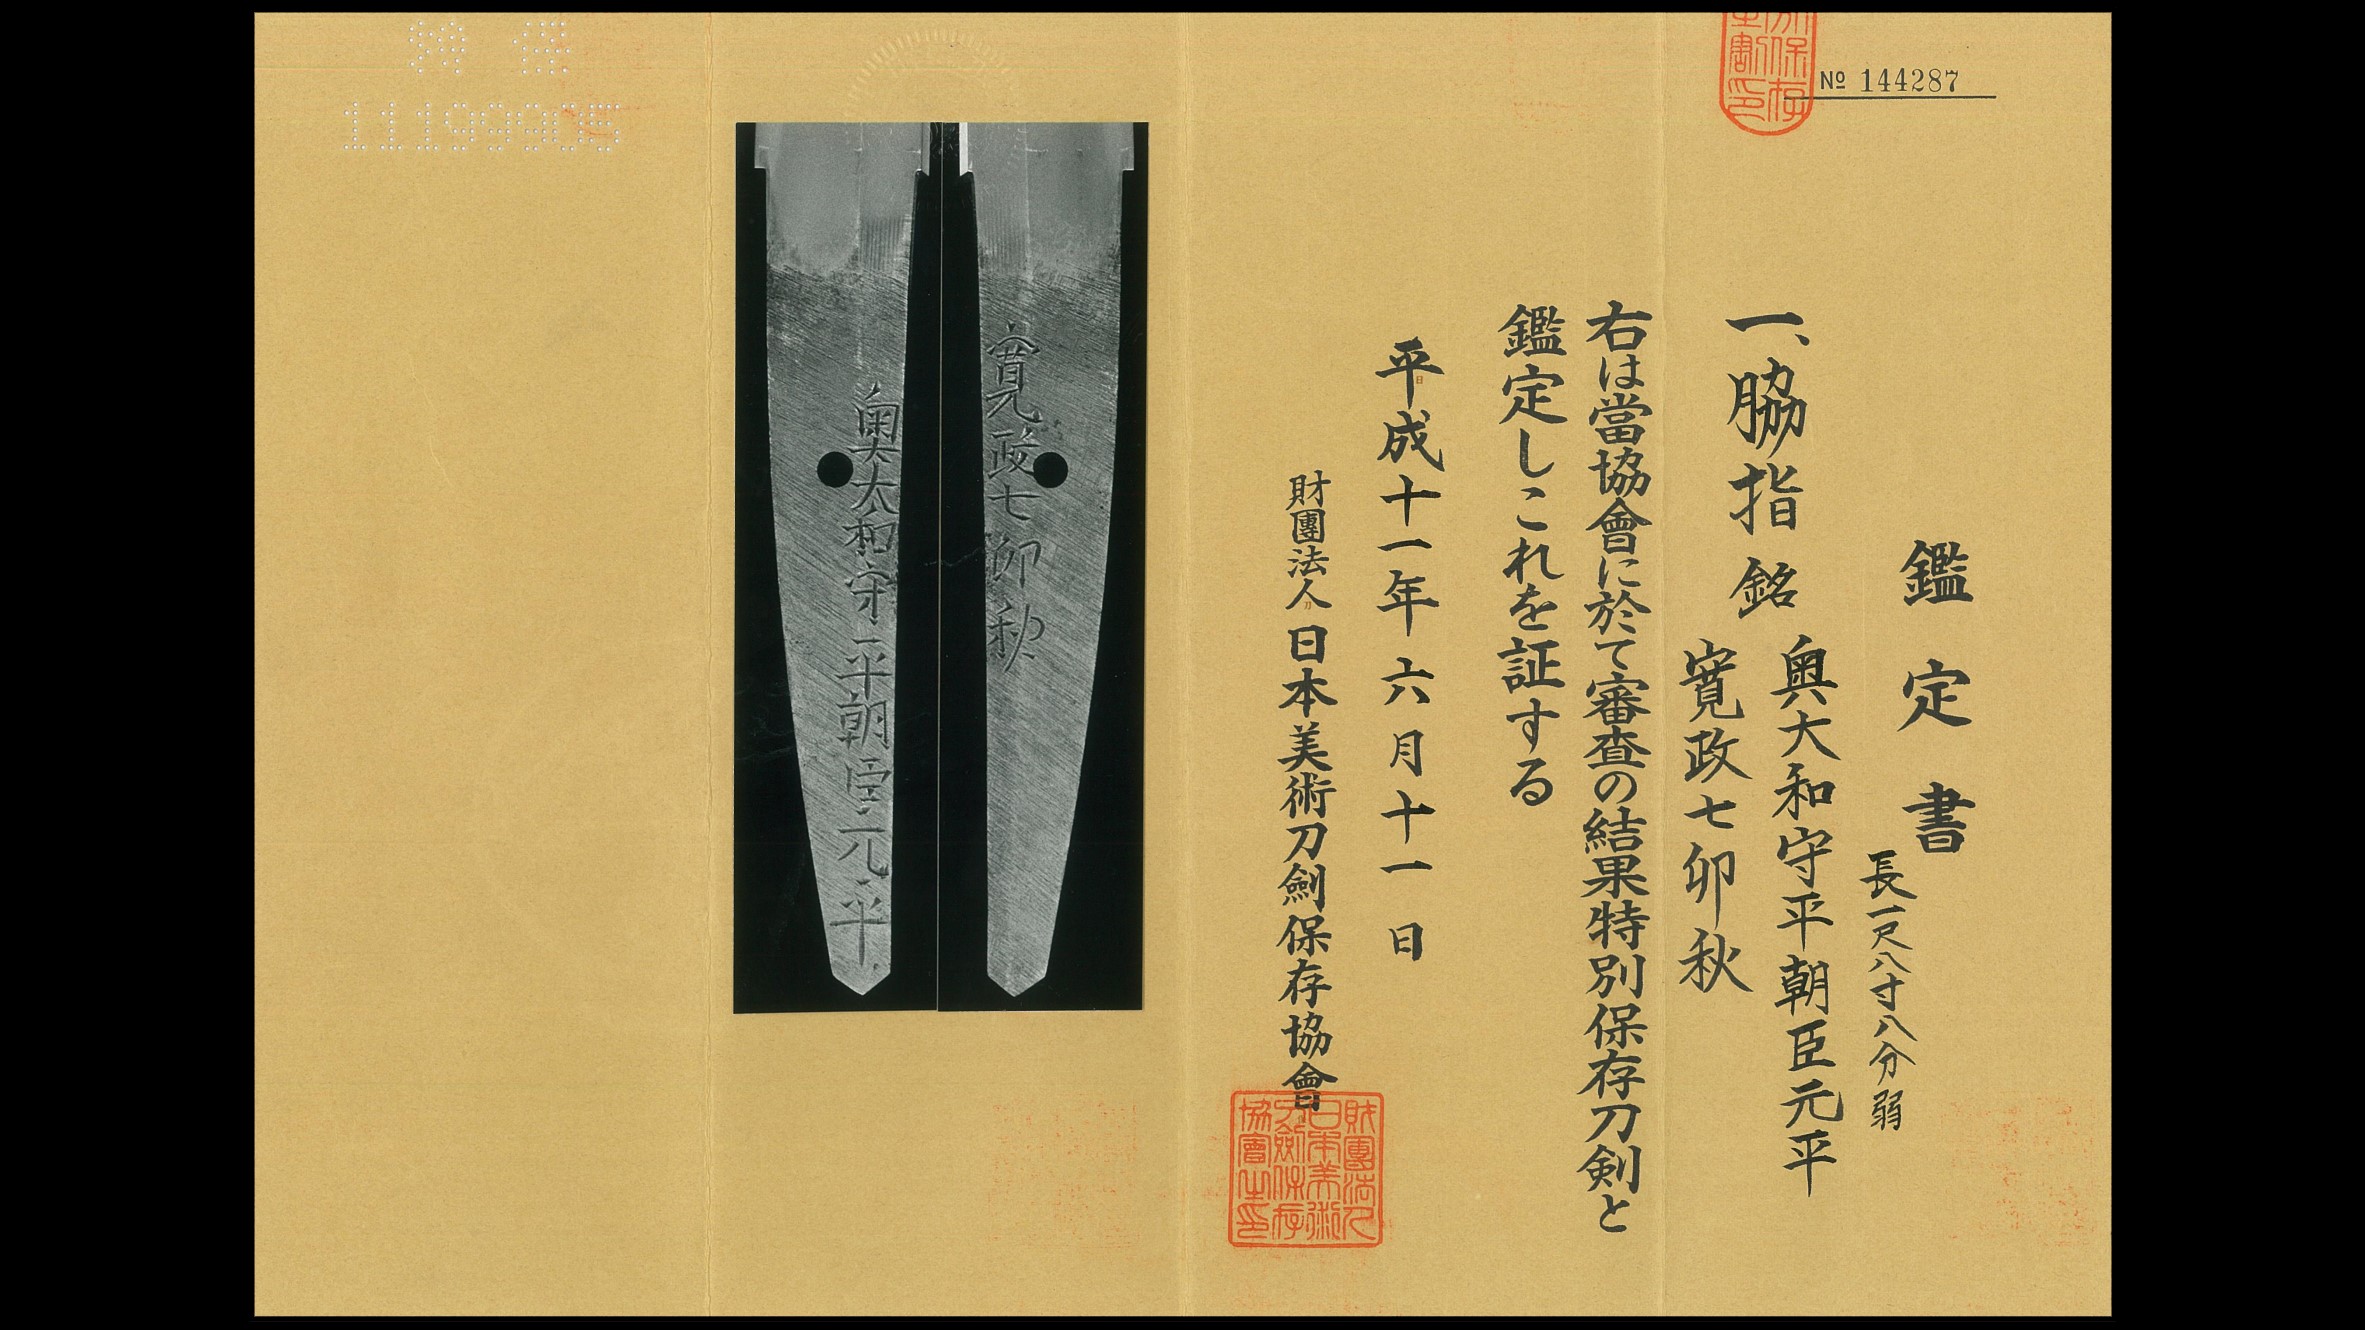 № 144287
鑑定書
長一尺八寸八分弱
一、脇指 銘 奥大和守平朝臣元平
寛政七卯秋
右は當協會に於て審査の結果特別保存刀剣と
鑑定しこれを証する
平成十一年六月十一日
財團法人 日本美術刀劍保存協會
財團法人
日本美術
刀劍保存
協會之印
寛政七卯秋
奥大和守平朝臣元平
11199905